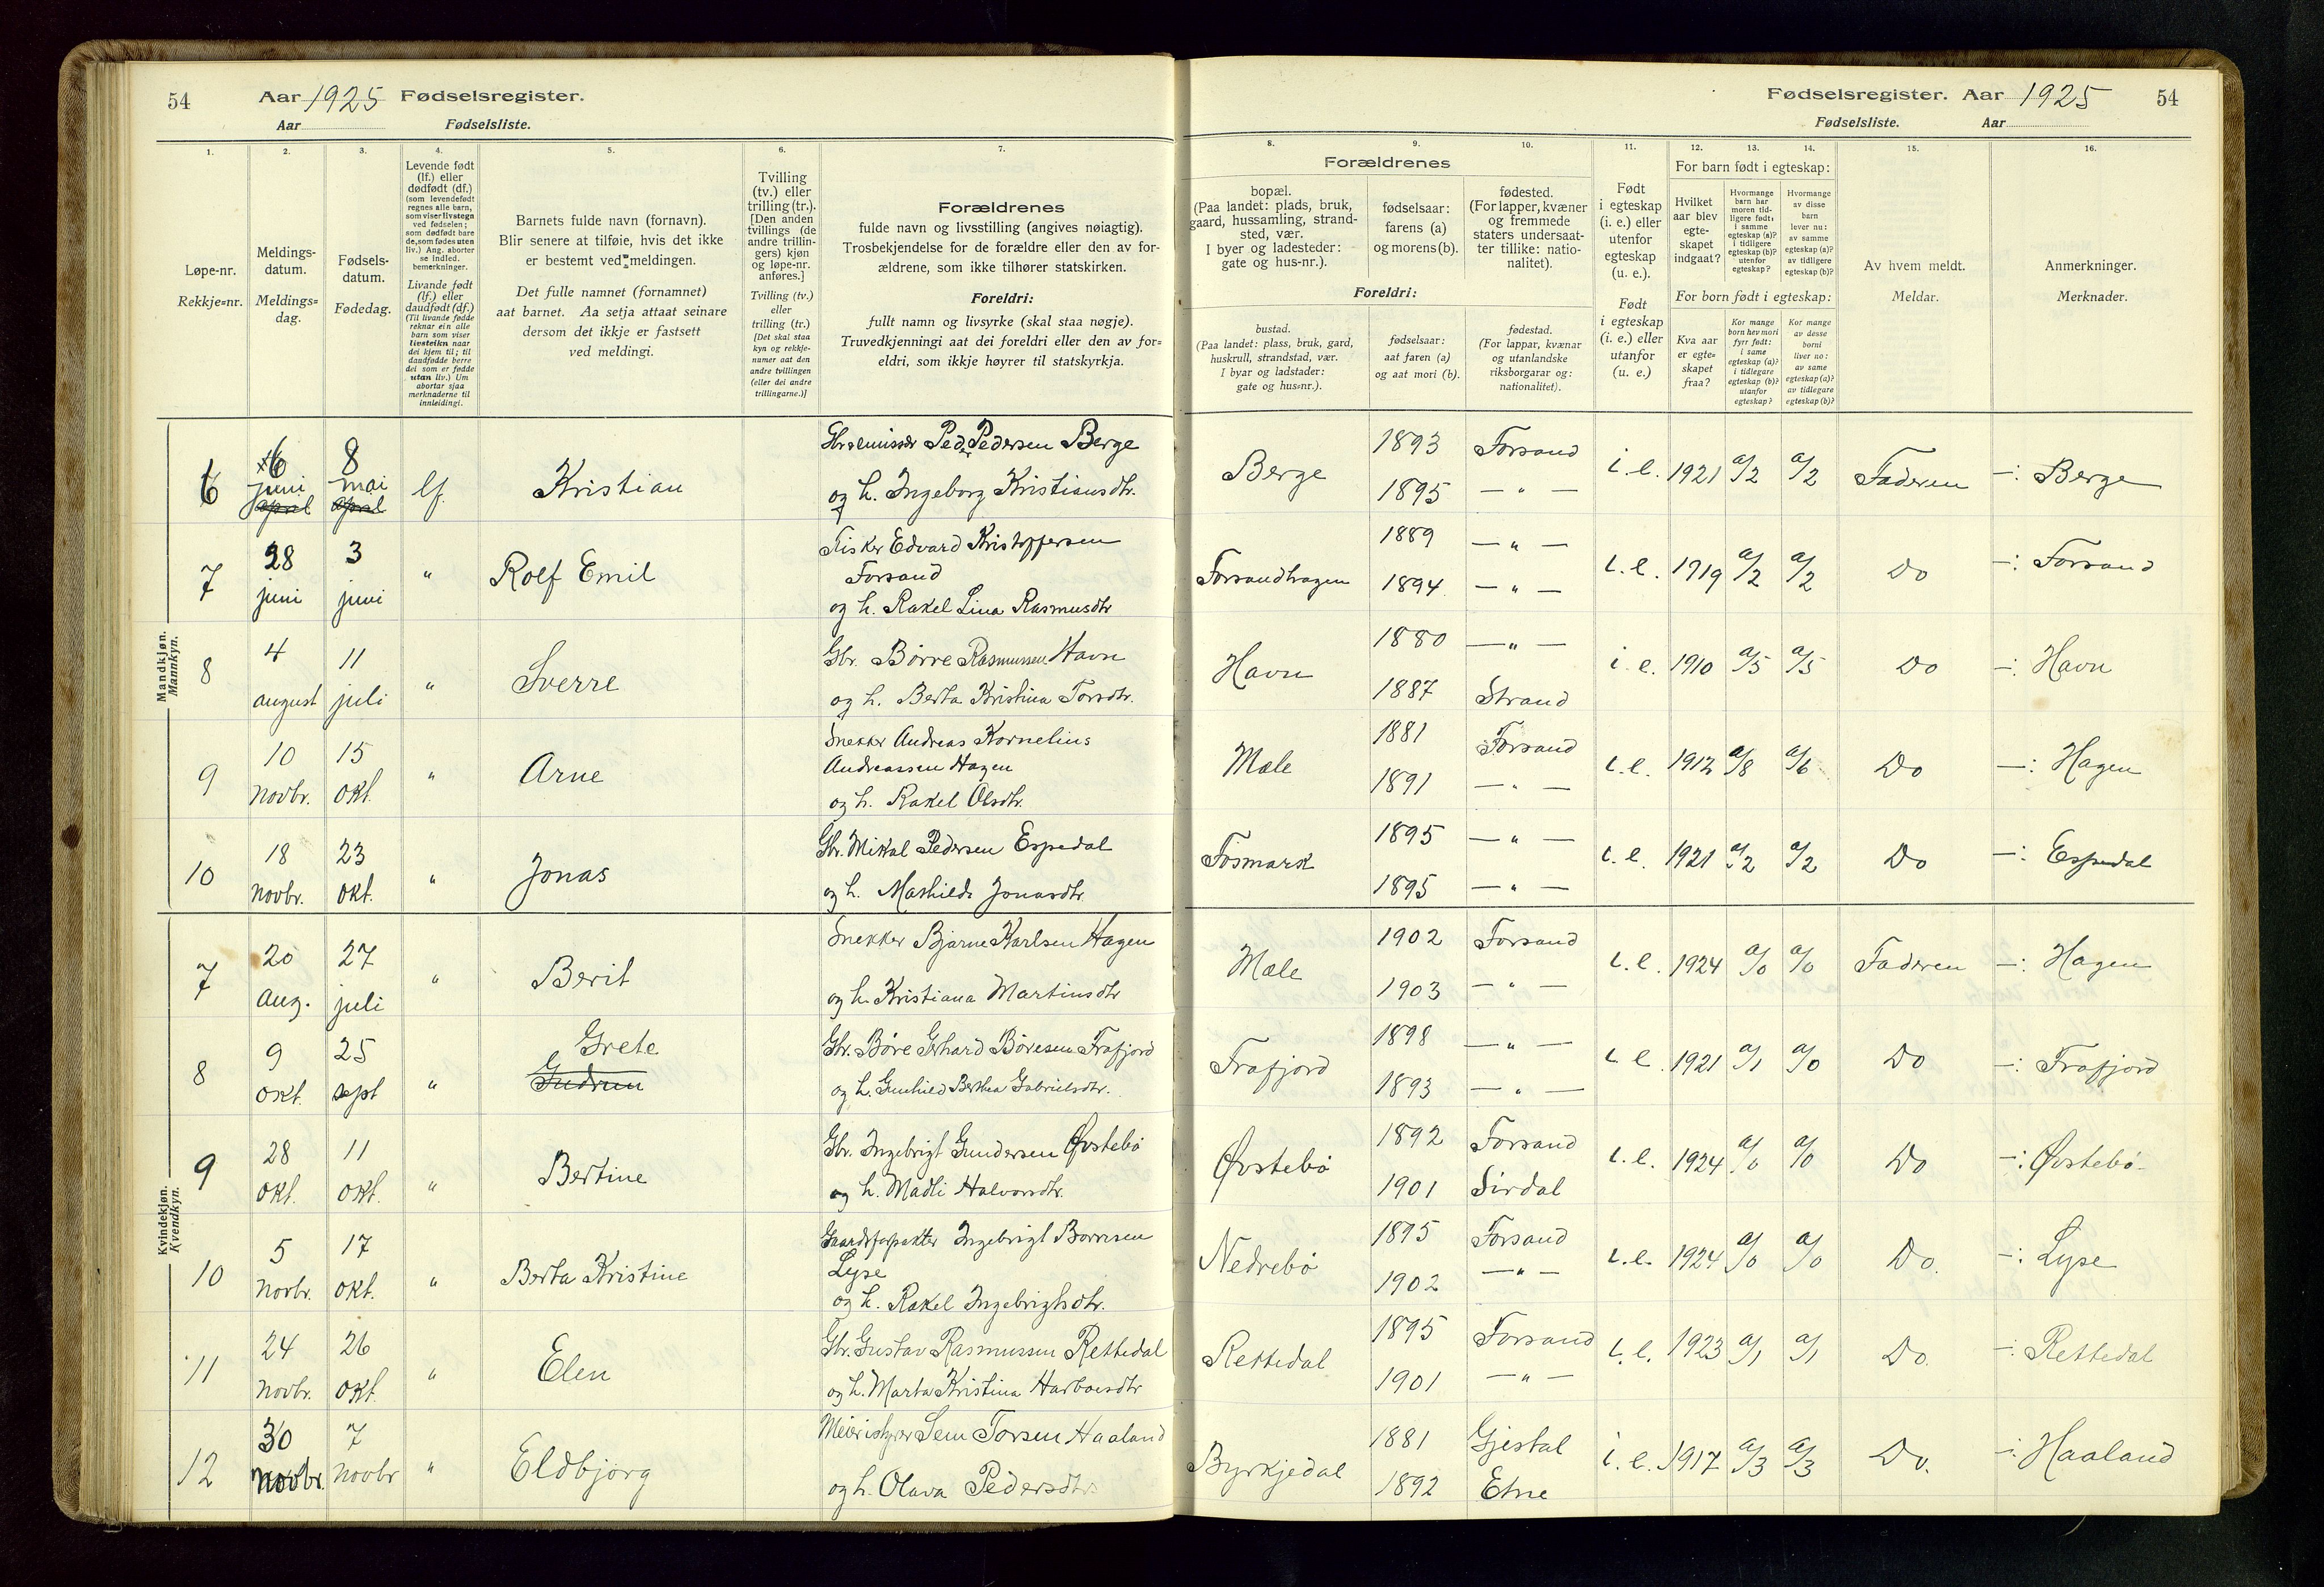 54 Aar 1925 Fødselsregister.
Aar Fødselsliste.
Fødselsregister. Aar 1925 54
Fødselsliste. Aar
1. 2. 3. 4. 5. 6. 7.
Løpe-nr.
Rekkje=nr.
Meldings-
datum.
Meldings=
dag.
Fødsels-
datum.
Fødedag.
Levende født
(lf.) eller
dødfødt (df.)
(som levendefødt
regnes alle barn,
som viser livstegn
ved fødselen;
som dødfødt bare
de, som fødes uten
liv.) Ang. aborter
se indled.
bemerkninger.
Livande født
(lf.) eller
daudfødt (df.)
(Til livande fødde
reknar ein alle
barn som viser
livsteikn naar
dei kjem til; til
daudfødde berre
dei som er fødde
utan liv.) Um
abortar sjaa
merknaderne til
innleidingi.
Barnets fulde navn (fornavn).
Blir senere at tilføie, hvis det ikke
er bestemt ved meldingen.
Det fulle namnet (fornamnet)
aat barnet. Aa setja attaat seinare
dersom det ikkje er fastsett
ved meldingi.
Tvilling
(tv.) eller
trilling (tr.).
[Den anden
tvillings (de
andre trillin-
gers) kjøn
og løpe-nr.
anføres.]
Tvilling (tv.)
eller
trilling (tr.)
[Det skal staa
kyn og rekkje-
numer aat den
andre tvillingen
(eller dei andre
trillingarne.)]
Forældrenes
fulde navn og livsstilling (angives nøiagtig).
Trosbekjendelse for de forældre eller den av for-
ældrene, som ikke tilhører statskirken.
Foreldri:
fullt namn og livsyrke (skal staa nøgje).
Truvedkjenningi aat dei foreldri eller den av for=
eldri, som ikkje høyrer til statskyrkja.
8. 9. 10. 11. 12. 13. 14. 15. 16.
Forældrenes
bopæl.
(Paa landet: plads, bruk,
gaard, hussamling, strand-
sted, vær.
I byer og ladesteder:
gate og hus-nr.).
fødselsaar:
farens (a)
og morens (b).
fødested.
(For lapper, kvæner
og fremmede
staters undersaat-
ter tillike: natio-
nalitet).
Foreldri:
bustad.
(Paa landet: plass, bruk, gard,
huskrull, strandstad, vær.
I byar og ladstader:
gate og hus=nr.).
fødselsaar:
aat faren (a)
og aat mori (b).
fødestad.
(For lappar, kvænar
og utanlandske
riksborgarar og:
nationalitet).
Født
i egteskap
(i. e.) eller
utenfor
egteskap
(u. e.).
Født
i egteskap
(i. e.) eller
utanfor
(u. e.)
For barn født i egteskap:
Hvilket
aar blev
egte-
skapet
indgaat?
Hvormange
barn har
moren tid-
ligere født:
i samme
egteskap (a)?
i tidligere
egteskap (b)?
utenfor
egteskap?
Hvormange
av disse
barn
lever nu:
av samme
egteskap (a)?
av tidligere
egteskap (b)?
For born født i egteskap:
Kva aar
er egte=
skapet
fraa?
Kor mange
born hev mori
fyrr født:
i same
egteskap (a)?
i tidlegare
egteskap (b)?
utanfor
egteskap?
Kor mange
av desse
borni
liver no:
av same
egteskap (a)?
av tidlegare
egteskap (b)?
Av hvem meldt.
Meldar.
Anmerkninger.
Merknader.
Mandkjøn.
Mannkyn.
6 6 juni april 8 mai april lf. Kristian
Ped. Pedersen Berge
og h. Ingeborg Kristiansdtr.
Berge 1893 Forsand i. e. 1921 a/2 a/2 Faderen —: Berge
1895 — " —
7 28 juni 3 juni " Rolf Emil
Fisker Edvard Kristoffersen
Forsand
og h. Rakel Lina Rasmusdtr
Forsandhagen 1889 — " — i. e. 1919 a/2 a/2 Do —: Forsand
1894 — " —
8 4 august 11 juli " Sverre
Gbr. Börre Rasmussen Havn
og h. Berta Kristina Torsdtr.
Havn 1880 — " — i. e. 1910 a/5 a/5 Do —: Havn
1887 Strand
9 10 novbr. 15 okt. " Arne
Snekker Andreas Kornelius
Andreassen Hagen
og h. Rakel Olsdtr.
Mæle 1881 Forsand i. e. 1912 a/8 a/6 Do —: Hagen
1891 — " —
10 18 novbr. 23 okt. " Jonas
Gbr. Mikal Pedersen Espedal
og h. Mathilde Jonasdtr
Fosmark 1895 — " — i. e. 1921 a/2 a/2 Do —: Espedal
1895 — " —
Kvindekjøn.
Kvendkyn.
7 20 aug. 27 juli " Berit
Snekker Bjarne Karlsen Hagen
og h. Kristiana Martinsdtr
Mæle 1902 Forsand i. e. 1924 a/0 a/0 Faderen —: Hagen
1903 — " —
8 9 okt. 25 sept " Grete
Gudrun
Gbr. Böre Gerhard Böresen Frafjord
og h. Gunhild Berthea Gabrielsdtr.
Frafjord 1898 — " — i. e. 1921 a/1 a/0 Do —: Frafjord
1893 — " —
9 28 okt. 11 okt. " Bertine
Gbr. Ingebrigt Gundersen Øvstebö
og h. Madli Halvorsdtr.
Øvstebö 1892 Forsand i. e. 1924 a/0 a/0 Do —: Øvstebö
1901 Sirdal
10 5 novbr. 17 okt. " Berta Kristine
Gaardsforpakter Ingebrigt Börresen
Lyse
og h. Rakel Ingebrigtsdtr.
Nedrebö 1895 Forsand i. e. 1924 a/0 a/0 Do. —: Lyse
1902 — " —
11 24 novbr. 26 okt. " Elen
Gbr. Gustav Rasmussen Rettedal
og h. Marta Kristina
Rettedal 1895 Forsand i. e. 1923 a/1 a/1 Do. —: Rettedal
1901 — " —
12 30 novbr. 7 novbr " Eldbjörg
Meieristyrer Sem Torsen Haaland
og h. Olava Pedersdtr.
Byrkjedal 1881 Gjestal i. e. 1917 a/3 a/3 Do. —: Haaland
1892 Etne